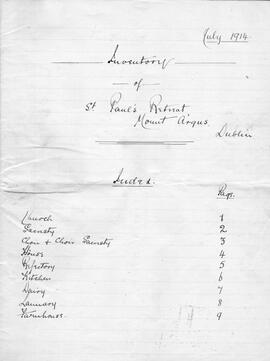 July 1914.
Inventory
of
St Paul's Retreat
Mount Argus
Dublin
Index.
Page.
Church 1
Sacristy 2
Choir & Choir Sacristy 3
House 4
Refectory 5
Kitchen 6
Dairy 7
Laundry 8
Farmhouse 9